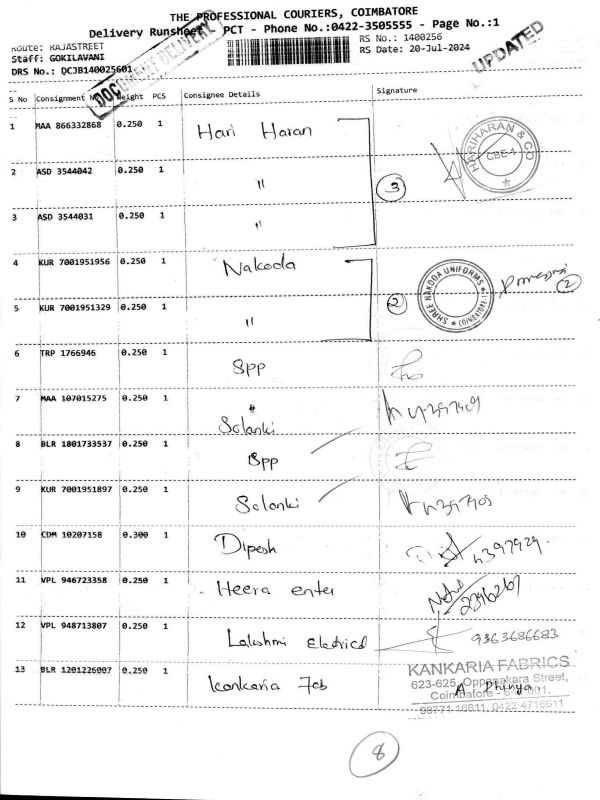 THE PROFESSIONAL COURIERS, COIMBATORE
Delivery Runsheet - PCT - Phone No.:0422-3505555 - Page No.:1
Route: RAJASTREET
RS No.: 1400256
Staff: GOKILAVANI
RS Date: 20-Jul-2024
DRS No.: DCJB140025601
DOCUMENT DELIVERY
UPDATED
S No Consignment No Weight PCS Consignee Details Signature
1 MAA 866332868 0.250 1 Hari Haran
HARIHARAN & CO CBE-1
2 ASD 3544042 0.250 1 "
3
3 ASD 3544031 0.250 1 "
4 KUR 7001951956 0.250 1 Nakoda
SHREE NAKODA UNIFORMS COIMBATORE-1
2
2
5 KUR 7001951329 0.250 1 "
6 TRP 1766946 0.250 1 SPP
7 MAA 107015275 0.250 1 Solanki
8 BLR 1801733537 0.250 1 SPP
9 KUR 7001951897 0.250 1 Solanki
10 CDM 10207158 0.300 1 Dipesh
11 VPL 946723358 0.250 1 Heera enter
2346267
12 VPL 948713807 0.250 1 Lakshmi Electrical
9363686683
13 BLR 1201226007 0.250 1 kankaria Fab
KANKARIA FABRICS
623-625, Oppanakara Street,
Coimbatore - 641 001.
A Dhinya
98771 16611, 0422 4716611
8